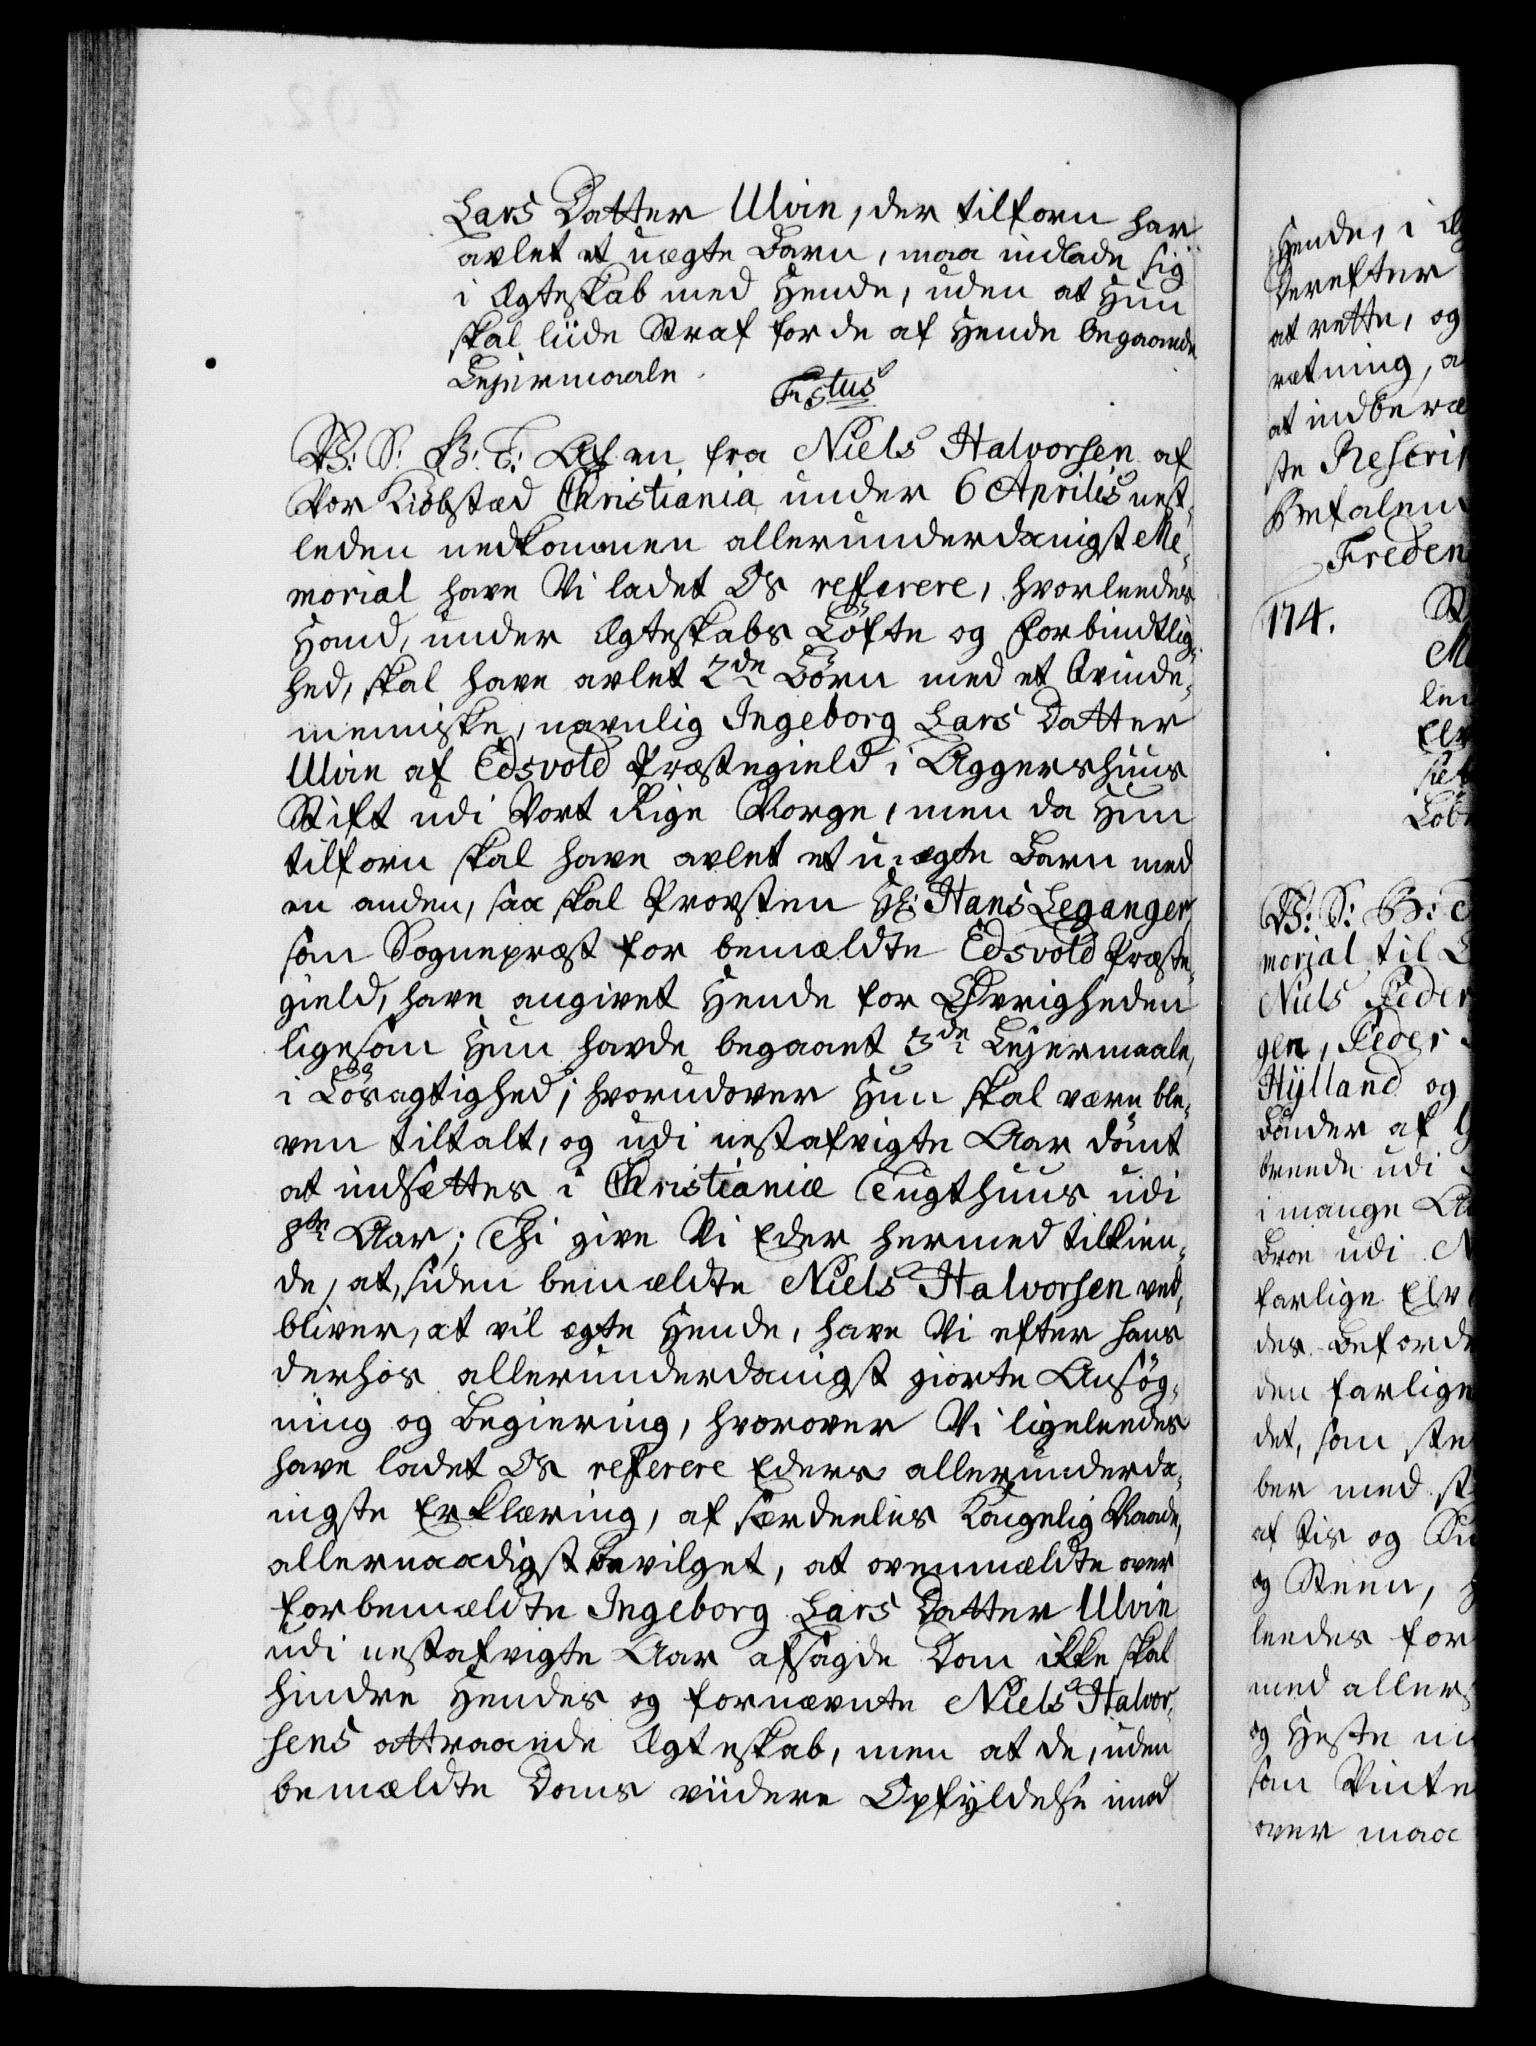 Lars Datter Ulvin, der tilforn har
avlet et uægte Barn, maa indlade sig
i Ægteskab med Hende, uden at Hun
skal liide Straf for de af Hende begaaende
Lejermaale.
V: S: G: T: Af en fra Niels Halvorsen af
Vor Kiöbstæd Christiania under 6 Aprilis nest-
leden nedkommen allerunderdanigst Me-
morial have Vi ladet Os referere, hvorleedes
Hand, under Ægteskabs Löfte og Forbindtlig-
hed, skal have avlet 2de Börn med et Qvinde-
menniske, navnlig Ingeborg Lars Datter
Ulvin af Edsvold Præstegield i Aggershuus
Stift udi Vort Rige Norge, men da Hun
tilforn skal have avlet et u-ægte Barn med
en anden, saa skal Provsten Hr: Hans Leganger,
som Sognepræst for bemældte Edsvold Præste-
gield, have angivet Hende for Øvrigheden
ligesom Hun havde begaaet 3de Lejermaale,
i Lösagtighed; hvorudover Hun skal være ble-
ven tiltalt, og udi nestafvigte Aar dömt
at indsættes i Christianiæ Tugthuus udi
8te Aar; Thi give Vi Eder hermed tilkien-
de, at, siden bemældte Niels Halvorsen ved-
bliver, at vil ægte Hende, have Vi efter hans
derhos allerunderdanigst giorte Ansög-
ning og Begiering, hvorover Vi ligeleedes
have ladet Os referere Eders allerunderda-
nigste Erklæring, af særdeeles Kongelig Naade,
allernaadigst bevilget, at ovenmældte over
forbemældte Ingeborg Lars Datter Ulvin
udi nestafvigte Aar afsagde Dom ikke skal
hindre Hendes og fornævnte Niels Halvor-
sens attraaende Ægteskab, men at de, uden
bemældte Doms viidere Opfyldelse imod
Hende, i
Derefter
at rette, og
retning, a
at indberæ
ste Rescrip
Befalen
Freden
174.
V: S: G: T
morial til
Niels Peder
gen, Peder
Hylland og
Bönder af
boende udi
i mange Aa
Broe udi N
farlige Elv
des Beford
den farlige
det, som ste
ber med st
af Iis og
og Steen,
leedes for
med allers
og Heste
som Vinte
over maae